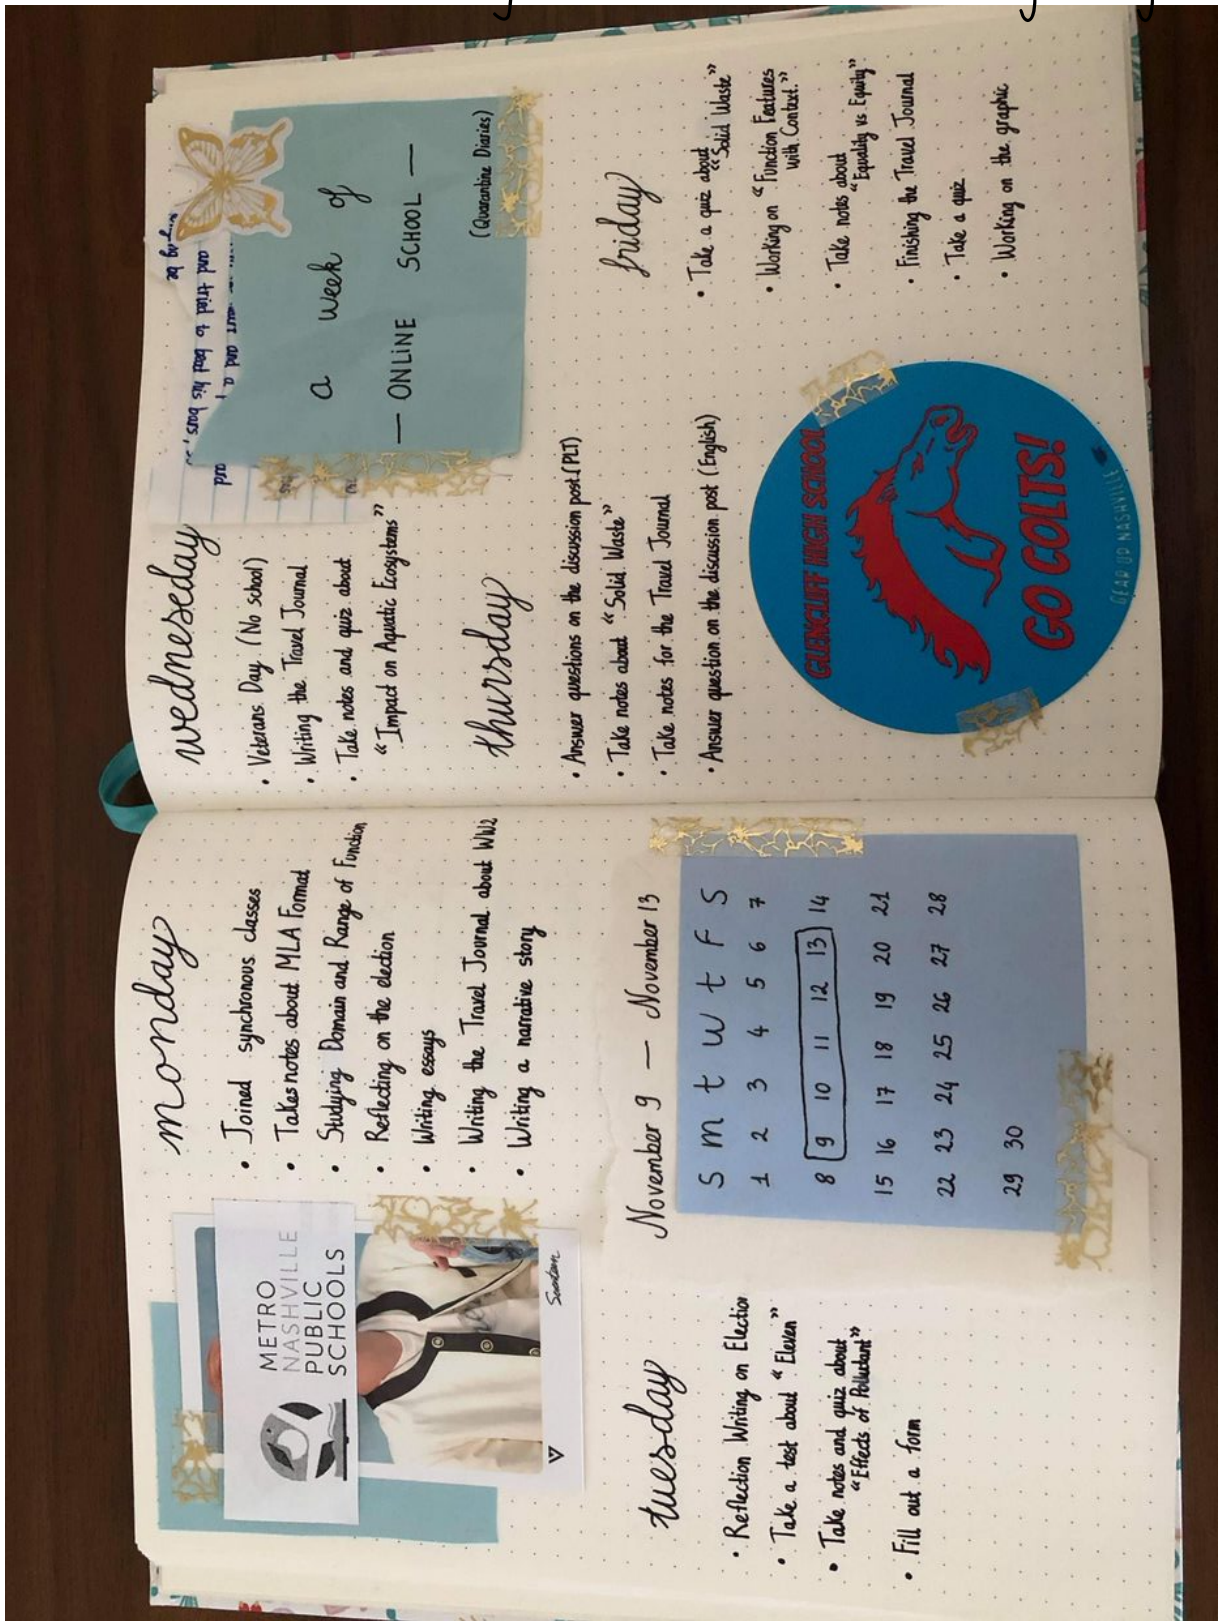 METRO
NASHVILLE
PUBLIC
SCHOOLS
Seventeen
monday
• Joined synchronous classes
• Takes notes about MLA Format
• Studying Domain and Range of Function
• Reflecting on the election
• Writing essays
• Writing the Travel Journal about WW2
• Writing a narrative story
tuesday
• Reflection Writing on Election
• Take a test about "Eleven"
• Take notes and quiz about
"Effects of Pollutant"
• Fill out a form
November 9 — November 13
S m t w t F S
1 2 3 4 5 6 7
8 9 10 11 12 13 14
15 16 17 18 19 20 21
22 23 24 25 26 27 28
29 30
wedneseday
• Veterans Day (No school)
• Writing the Travel Journal
• Take notes and quiz about
"Impact on Aquatic Ecosystems"
and tried to beat his
and
a week of
— ONLINE SCHOOL —
(Quarantine Diaries)
thursday
• Answer questions on the discussion post (PLT)
• Take notes about "Solid Waste"
• Take notes for the Travel Journal
• Answer question on the discussion post (English)
GLENCLIFF HIGH SCHOOL
GO COLTS!
GEAR UP NASHVILLE
friday
• Take a quiz about
"Solid Waste"
• Working on "Function Features
with Context."
• Take notes about
"Equality vs Equity"
• Finishing the Travel Journal
• Take a quiz
• Working on the graphic